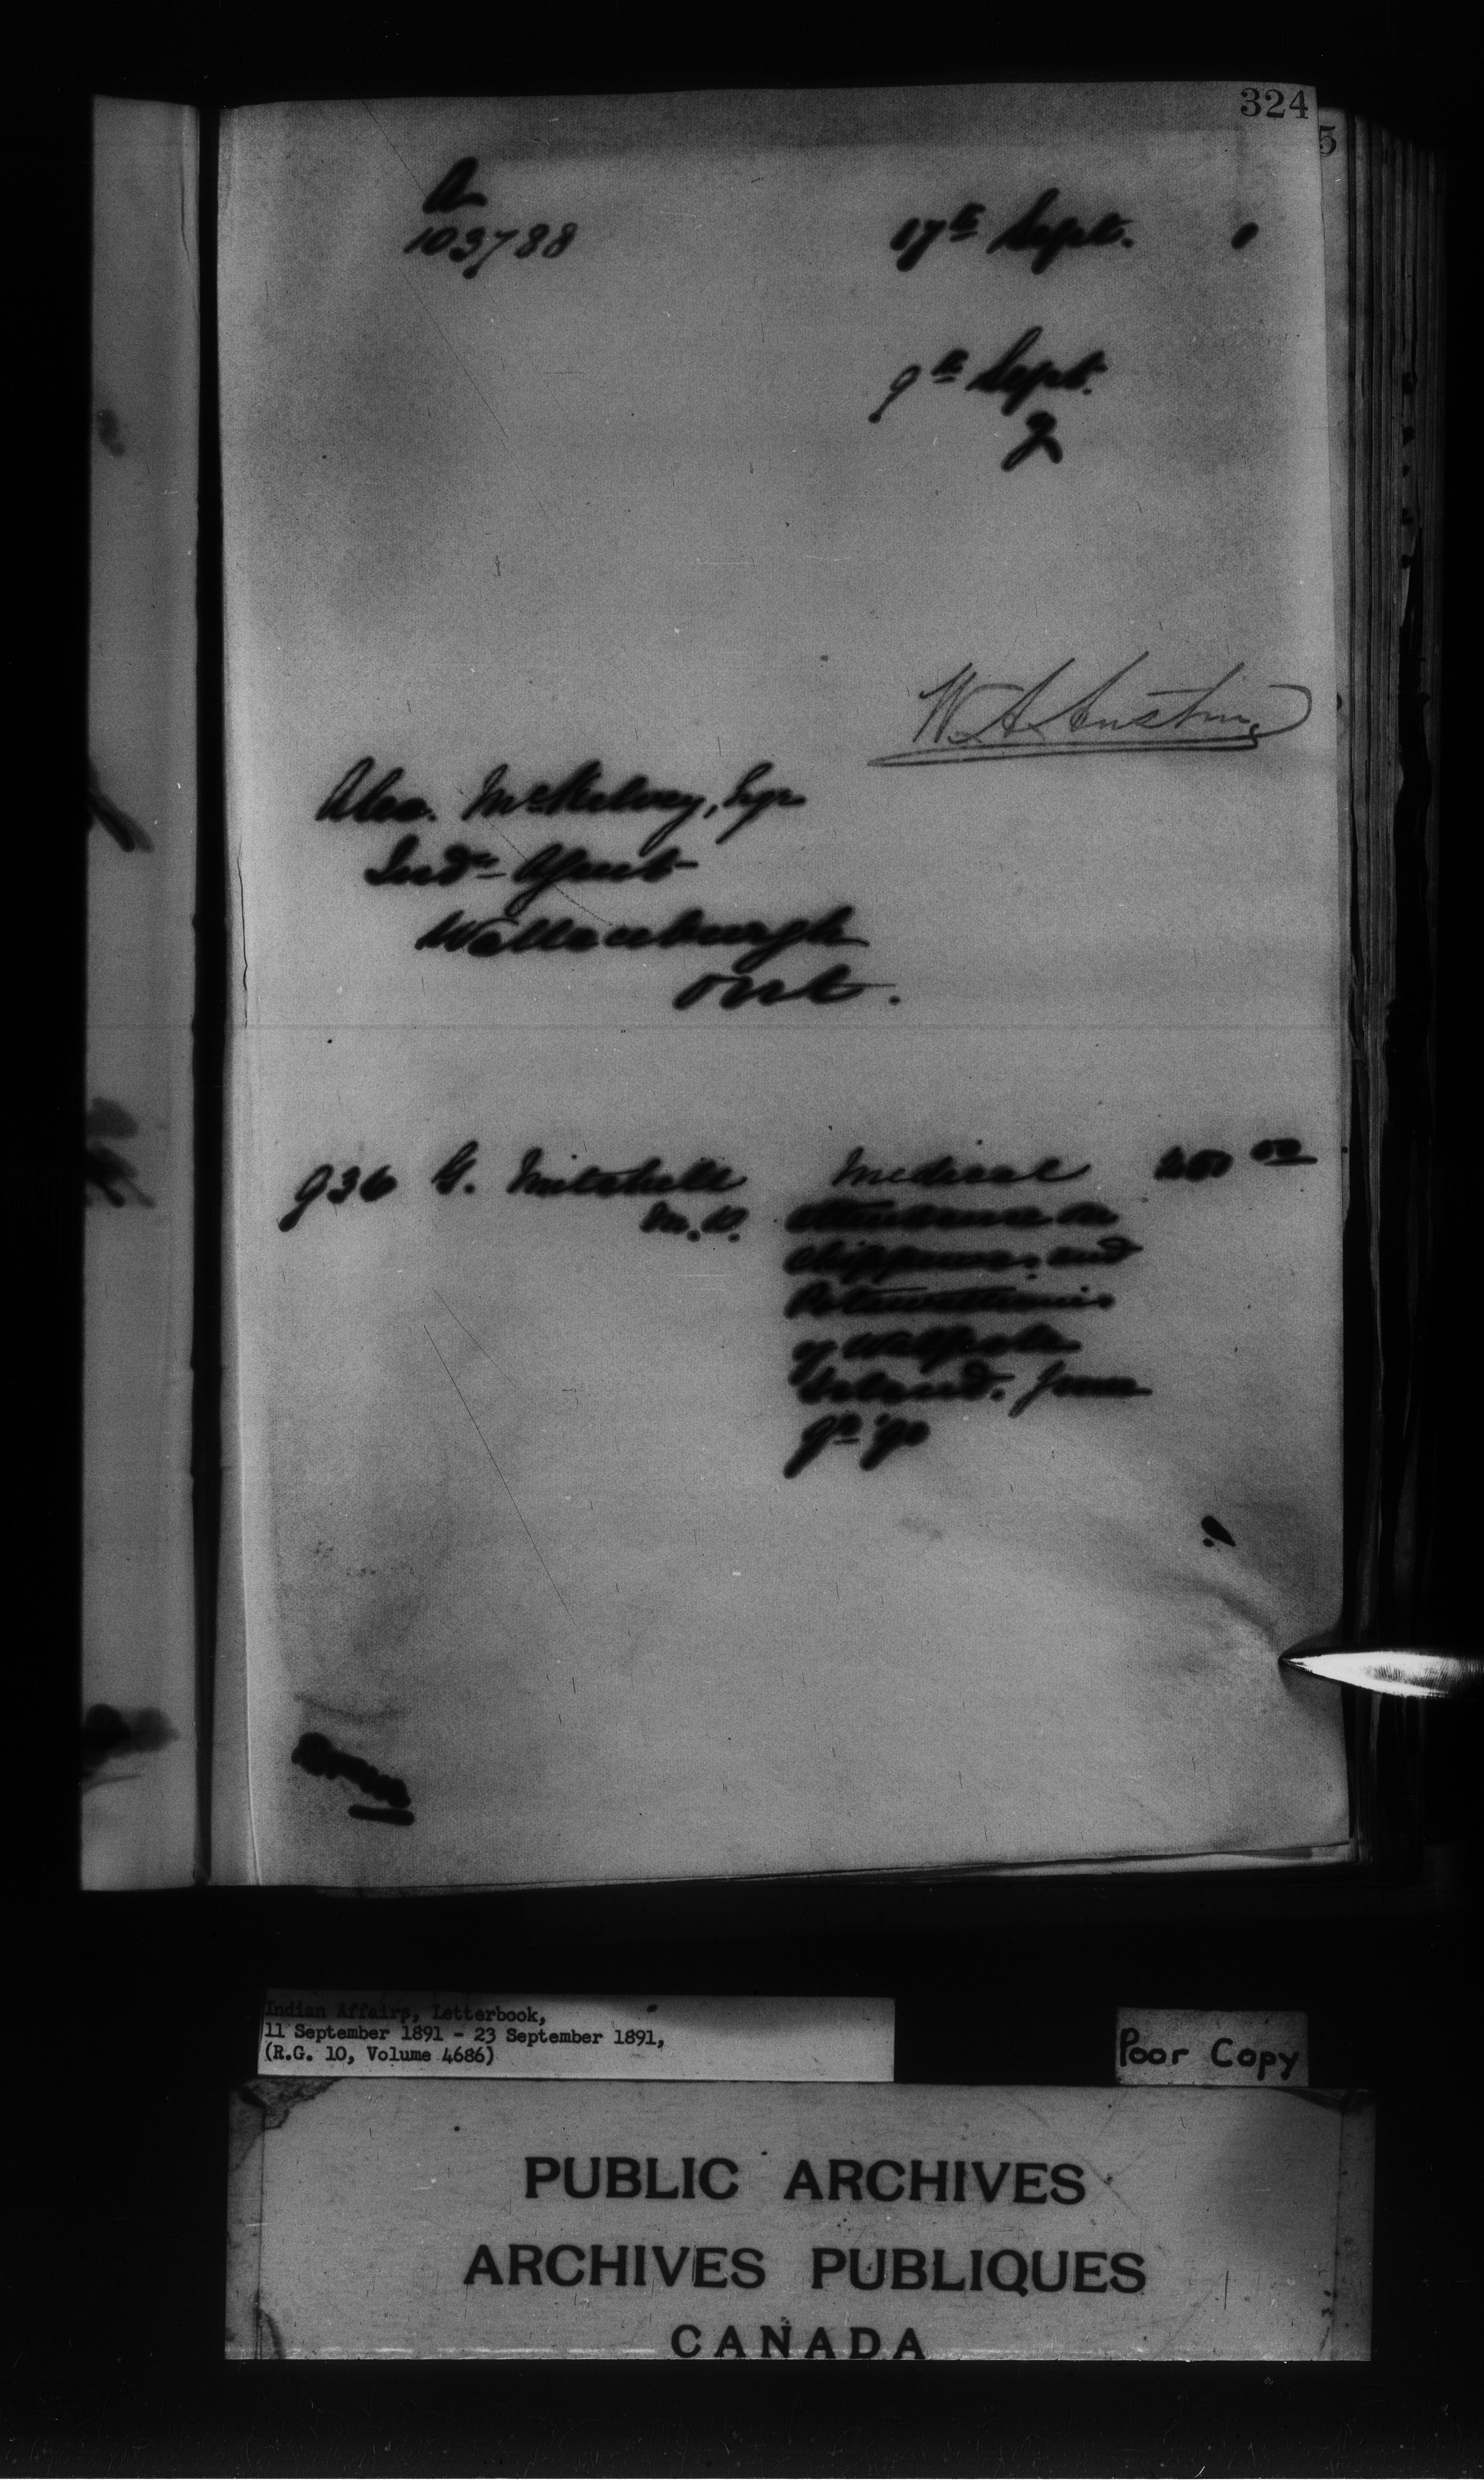 324
5
A
103788
17th Sept. 1
9th Sept.
W. A. Austin
Alex. McKelvey, Esqr
Indn Agent
Wallaceburgh
Ont.
936 G. Mitchell Medical 400 00
M.D. attendance on
Chippewas and
Potawattamies
of Walpole
Island. June
'90
Indian Affairs, Letterbook,
11 September 1891 - 23 September 1891,
(R.G. 10, Volume 4686)
Poor Copy
PUBLIC ARCHIVES
ARCHIVES PUBLIQUES
CANADA